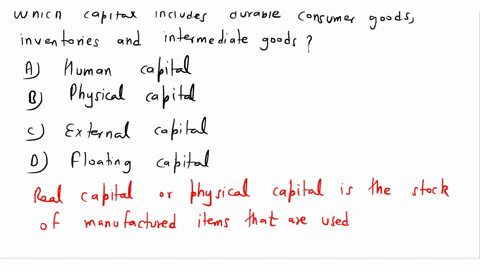 Which capital includes durable consumer goods,
inventories and intermediate goods?
A) Human capital
B) Physical capital
C) External capital
D) Floating capital
Real capital or physical capital is the stock
of manufactured items that are used